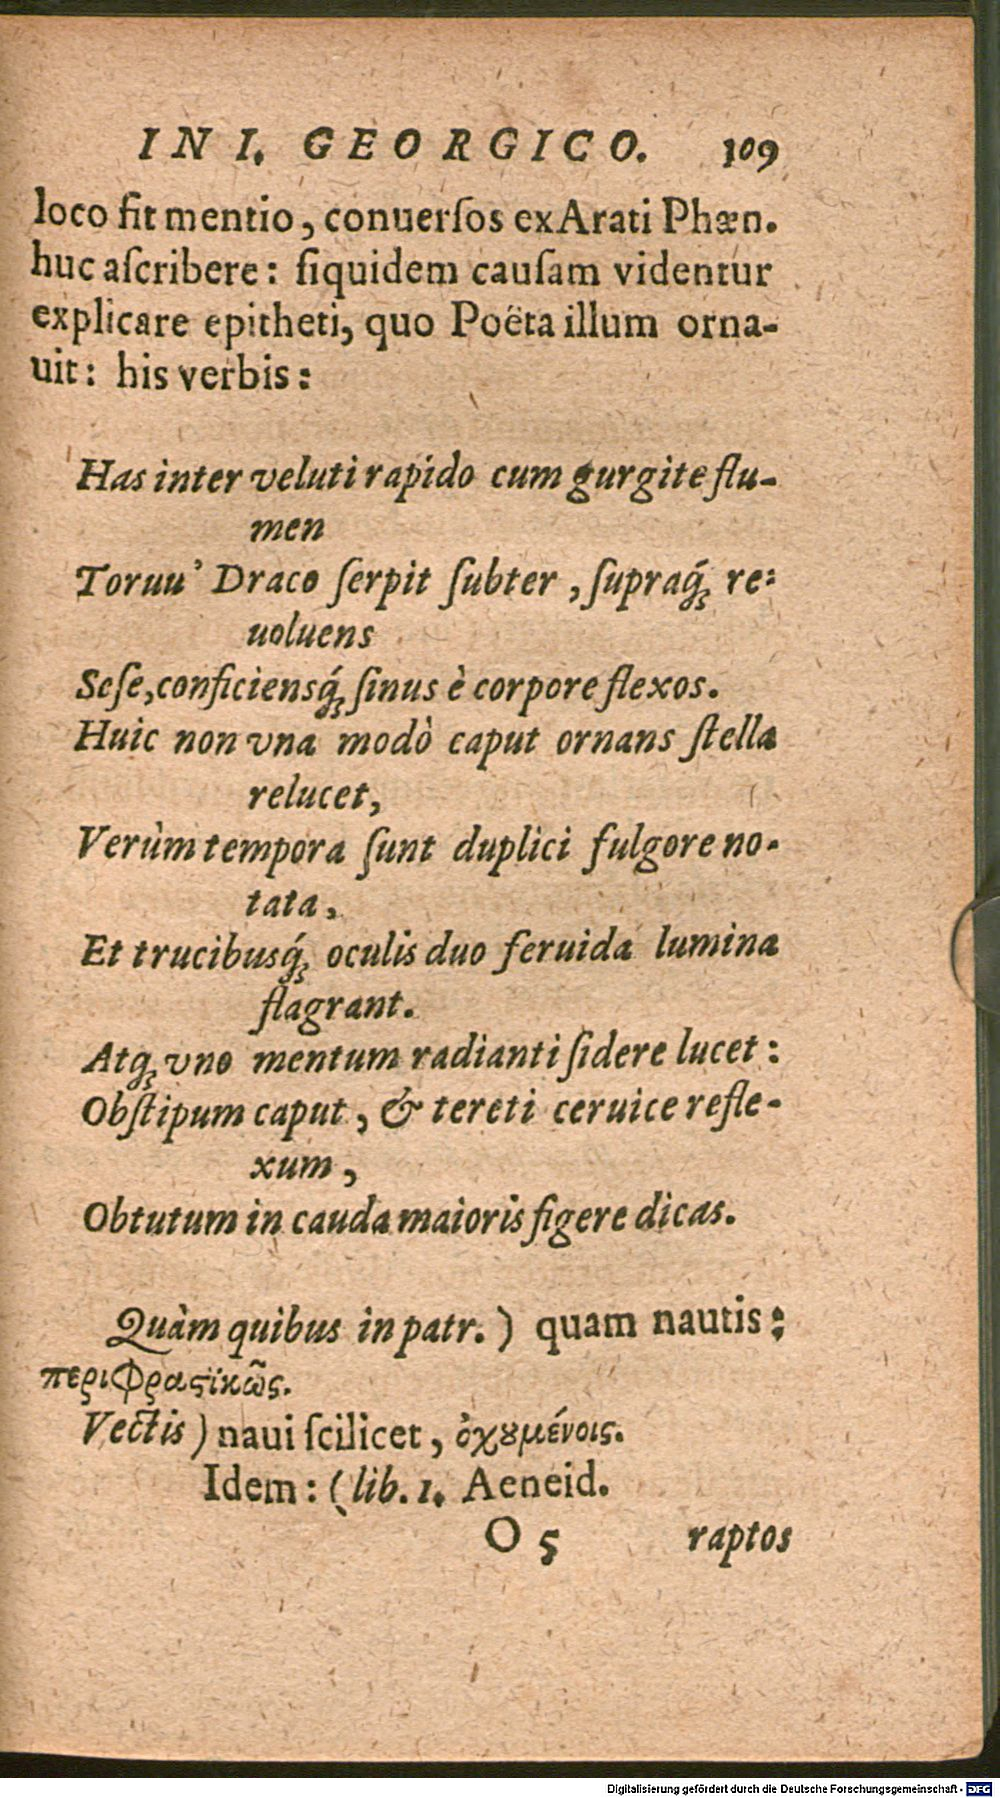 IN I. GEORGICO. 109
loco fit mentio, conuerſos ex Arati Phæn.
huc aſcribere: ſiquidem cauſam videntur
explicare epitheti, quo Poëta illum orna-
uit: his verbis:
Has inter veluti rapido cum gurgite flu-
men
Toruu' Draco ſerpit ſubter, ſupraq́; re-
uoluens
Seſe, conficiensq́; ſinus è corpore flexos.
Huic non vna modò caput ornans ſtella
relucet,
Verùm tempora ſunt duplici fulgore no-
tata,
Et trucibusq́; oculis duo feruida lumina
flagrant.
Atq; vno mentum radianti ſidere lucet:
Obſtipum caput, & tereti ceruice refle-
xum,
Obtutum in cauda maioris figere dicas.
Quàm quibus in patr.) quam nautis:
περιφραςϊκῶς.
Vectis) naui ſcilicet, ὀχȣμένοις.
Idem: (lib. 1. Aeneid.
O 5 raptos
Digitalisierung gefördert durch die Deutsche Forschungsgemeinschaft - DFG